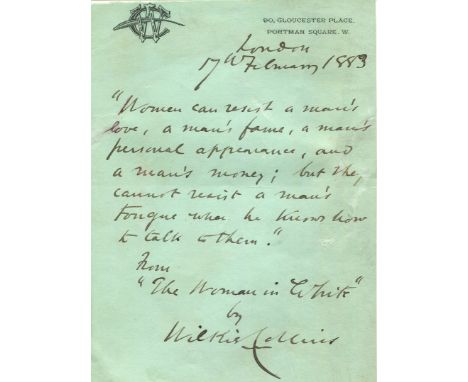 90, GLOUCESTER PLACE,
PORTMAN SQUARE. W.
London
17th February 1883
"Women can resist a man's
love, a man's fame, a man's
personal appearance, and
a man's money; but they
cannot resist a man's
tongue when he knows how
to talk to them."
From
"The Woman in White"
by
Wilkie Collins